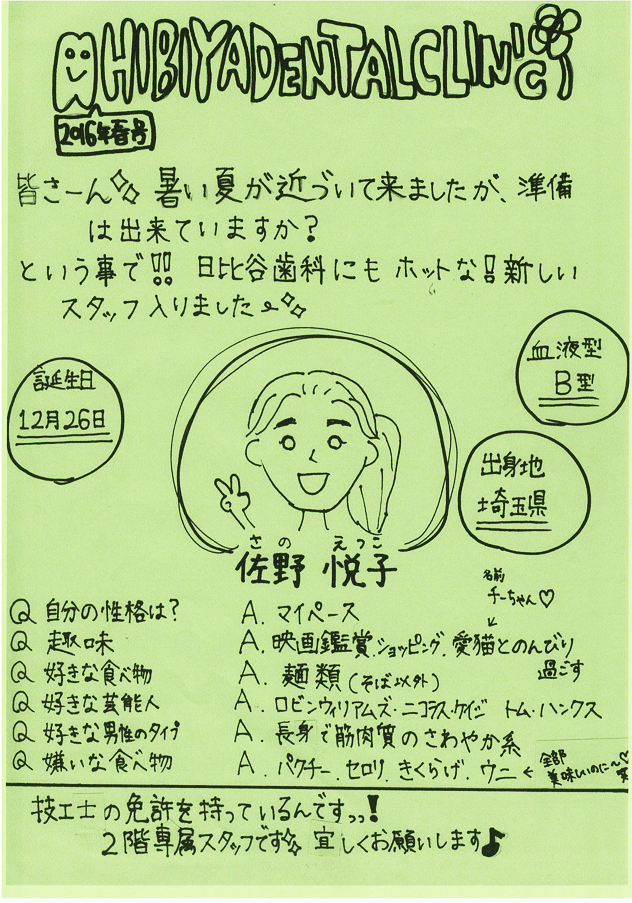 HIBIYADENTALCLINIC
2016年春号
皆さーん 暑い夏が近づいて来ましたが、準備
は出来ていますか?
という事で!! 日比谷歯科にも ホットな!新しい
スタッフ入りました〜
誕生日
12月26日
血液型
B型
出身地
埼玉県
さの えつこ
佐野 悦子
名前
チーちゃん♡
Q 自分の性格は? A. マイペース
Q 趣味 A. 映画鑑賞.ショッピング.愛猫とのんびり
過ごす
Q 好きな食べ物 A. 麺類(そば以外)
Q 好きな芸能人 A. ロビンウィリアムズ・ニコラス・ケイジ トム・ハンクス
Q 好きな男性のタイプ A. 長身で筋肉質のさわやか系
Q 嫌いな食べ物 A. パクチー.セロリ.きくらげ.ウニ ←
全部
美味しいのに〜♡
笑
技工士の免許を持っているんですっっ!
2階専属スタッフです 宜しくお願いします♪